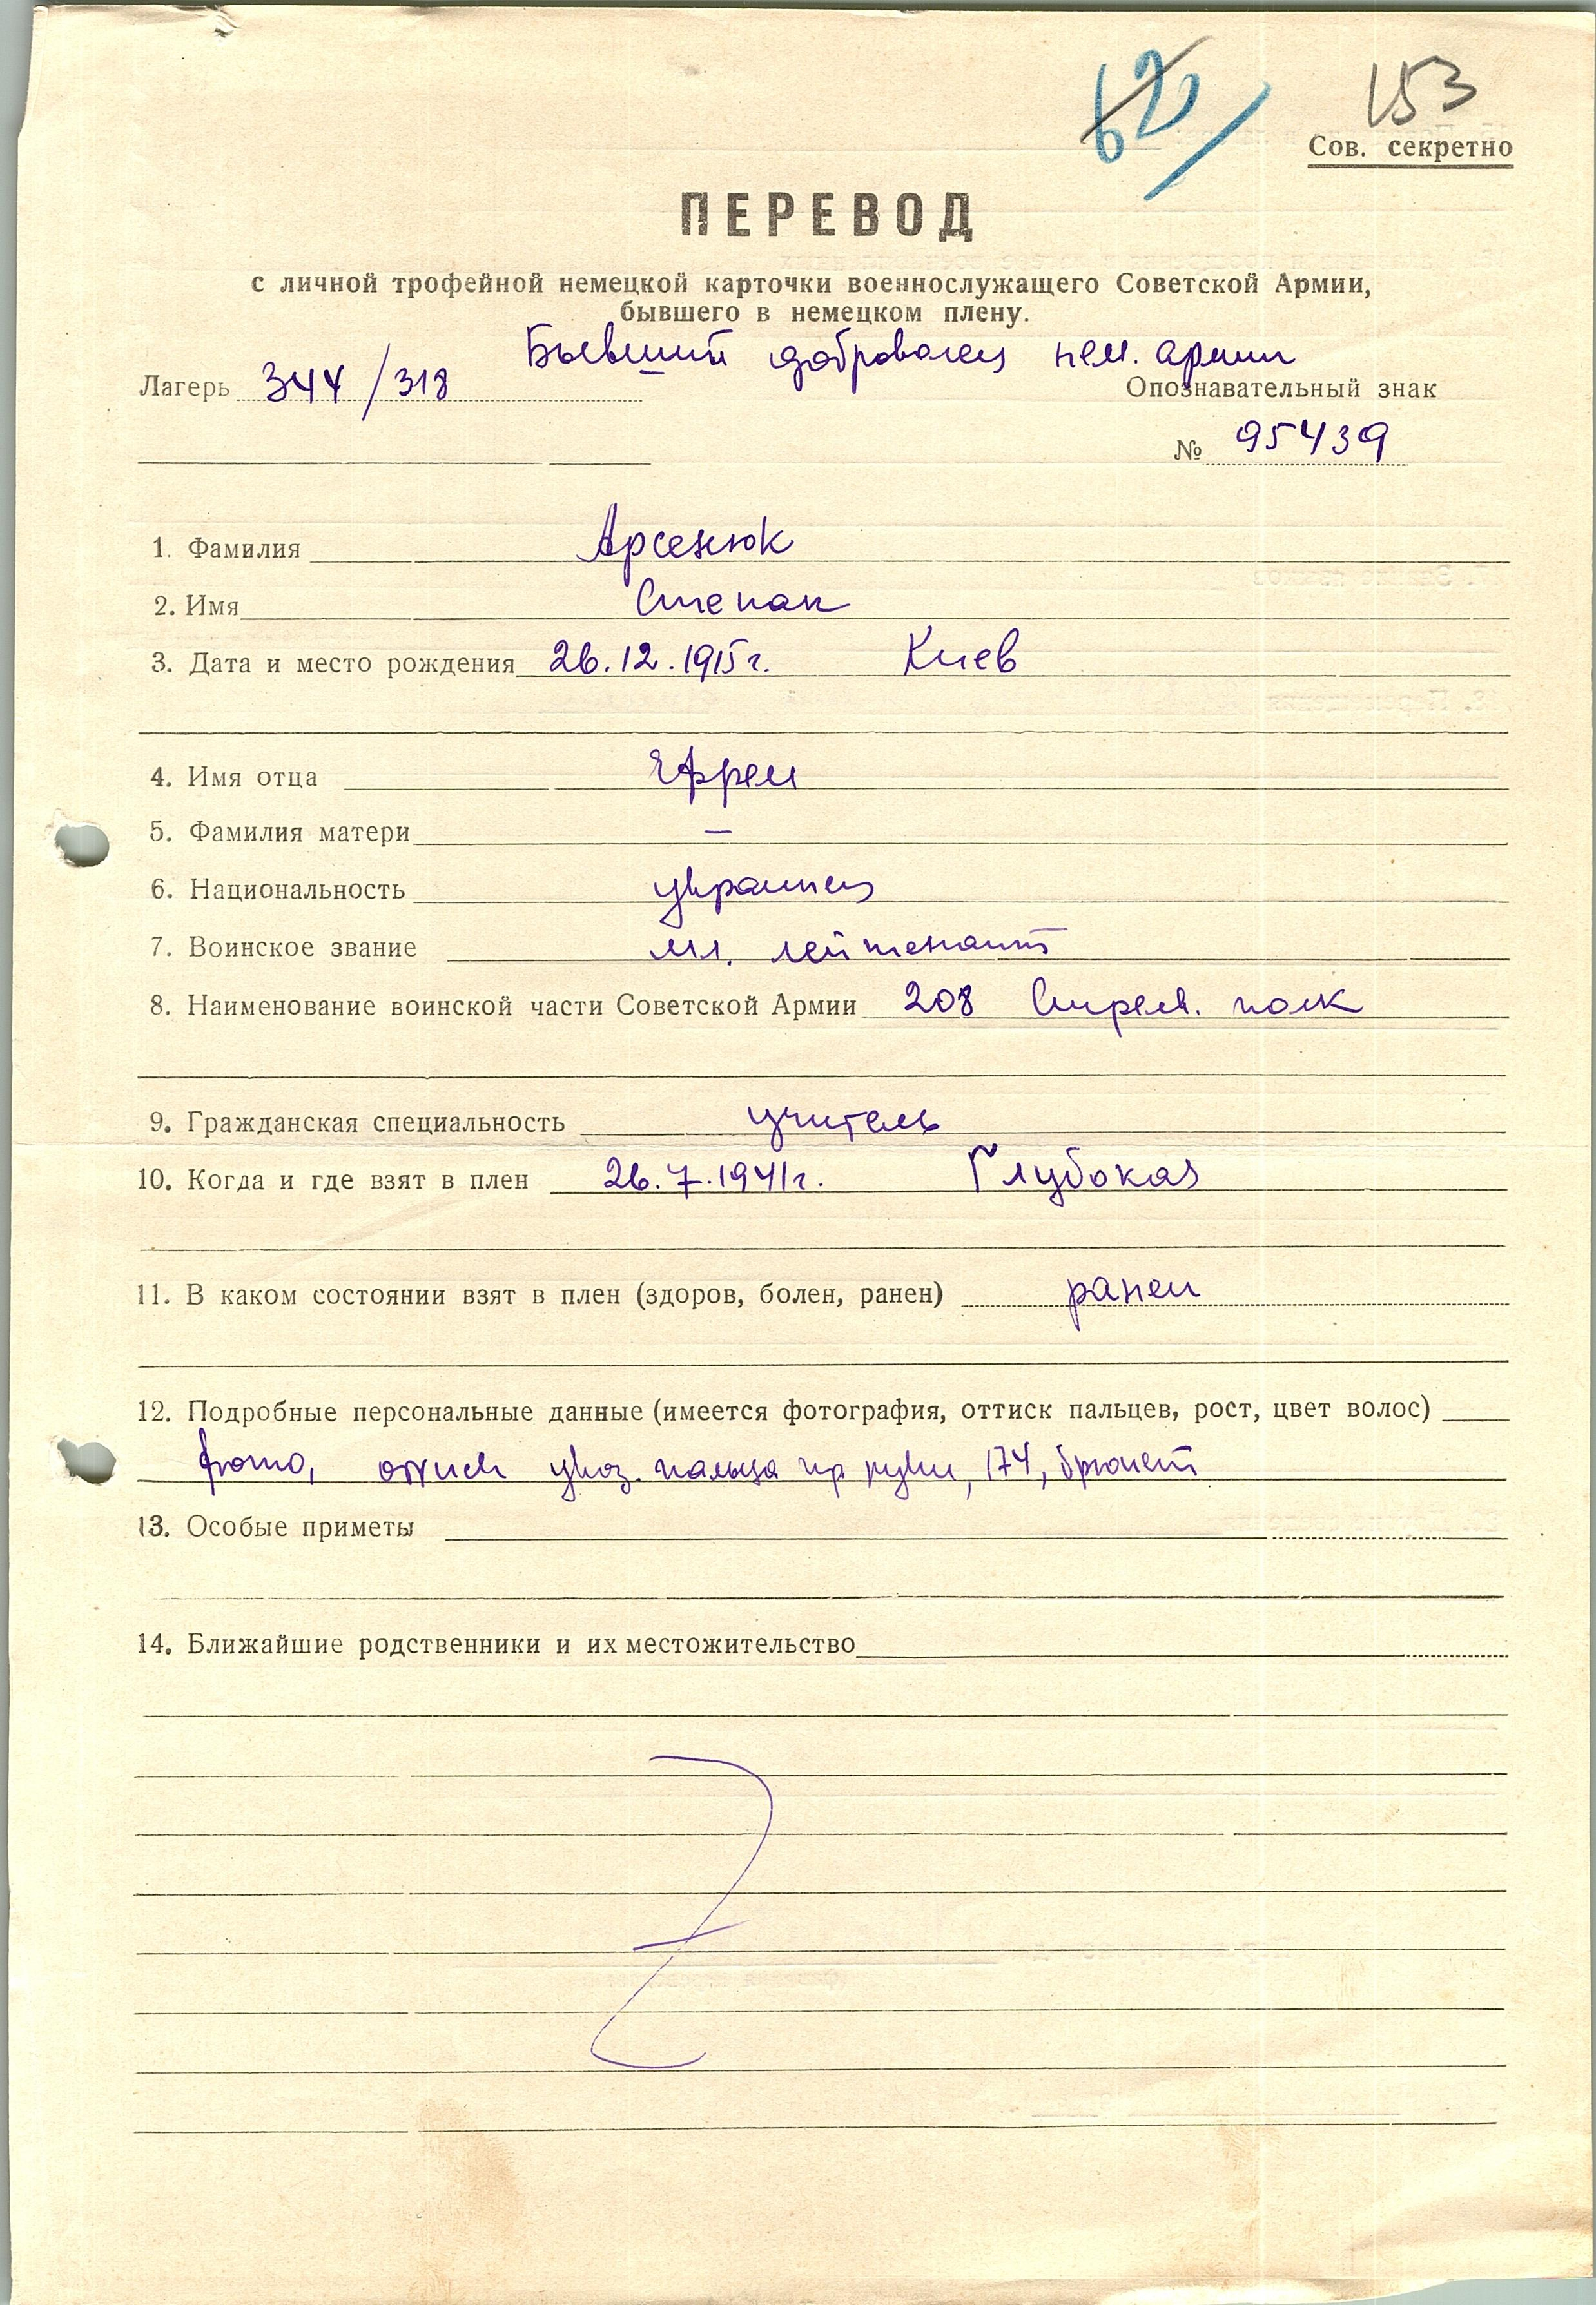 62
153
Сов. секретно
ПЕРЕВОД
с личной трофейной немецкой карточки военнослужащего Советской Армии,
бывшего в немецком плену.
Бывший доброволец нем. армии
Лагерь 344/318 Опознавательный знак
№ 95439
1. Фамилия Арсенюк
2. Имя Степан
3. Дата и место рождения 26.12.1915г. Киев
4. Имя отца Ефрем
5. Фамилия матери —
6. Национальность украинец
7. Воинское звание мл. лейтенант
8. Наименование воинской части Советской Армии 208 Стрелк. полк
9. Гражданская специальность учитель
10. Когда и где взят в плен 26.7.1941г. Глубокая
11. В каком состоянии взят в плен (здоров, болен, ранен) ранен
12. Подробные персональные данные (имеется фотография, оттиск пальцев, рост, цвет волос)
фото, оттиск указ. пальца пр руки, 174, брюнет
13. Особые приметы
14. Ближайшие родственники и их местожительство